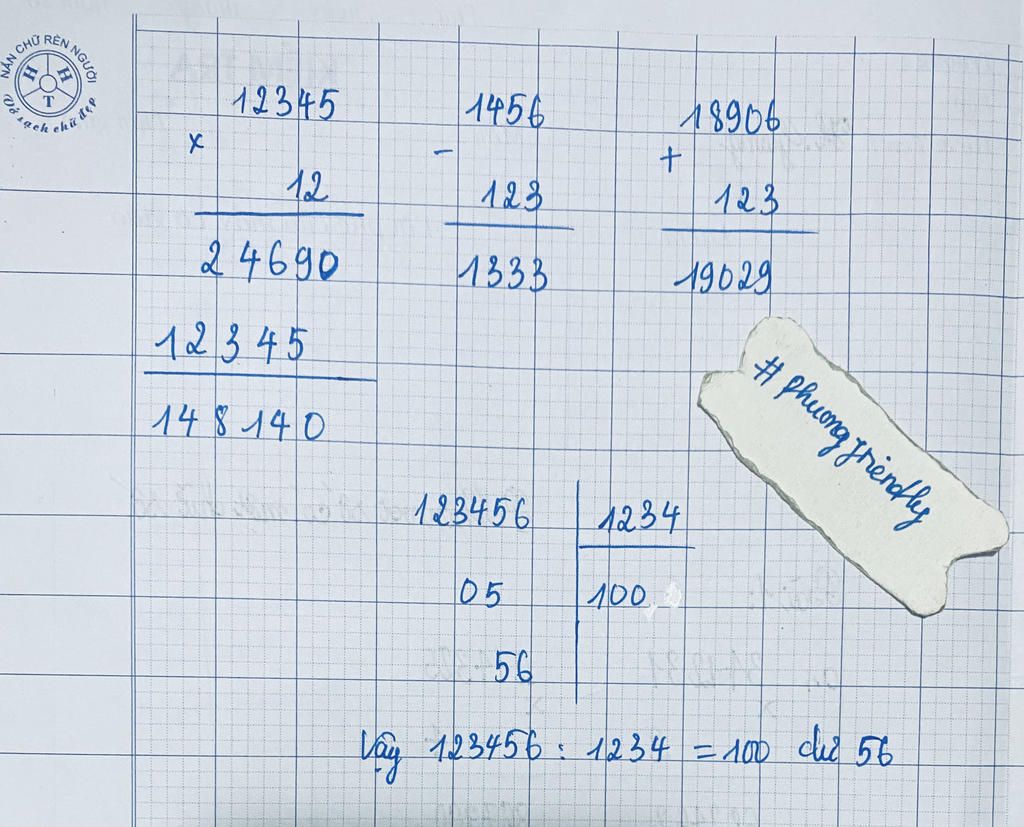 NẮN CHỮ RÈN NGƯỜI
H H
T
Vở sạch chữ đẹp
12345
x
12
24690
12345
148140
1456
-
123
1333
18906
+
123
19029
#phuongfriendly
123456 1234
05 100
56
Vậy 123456 : 1234 = 100 dư 56